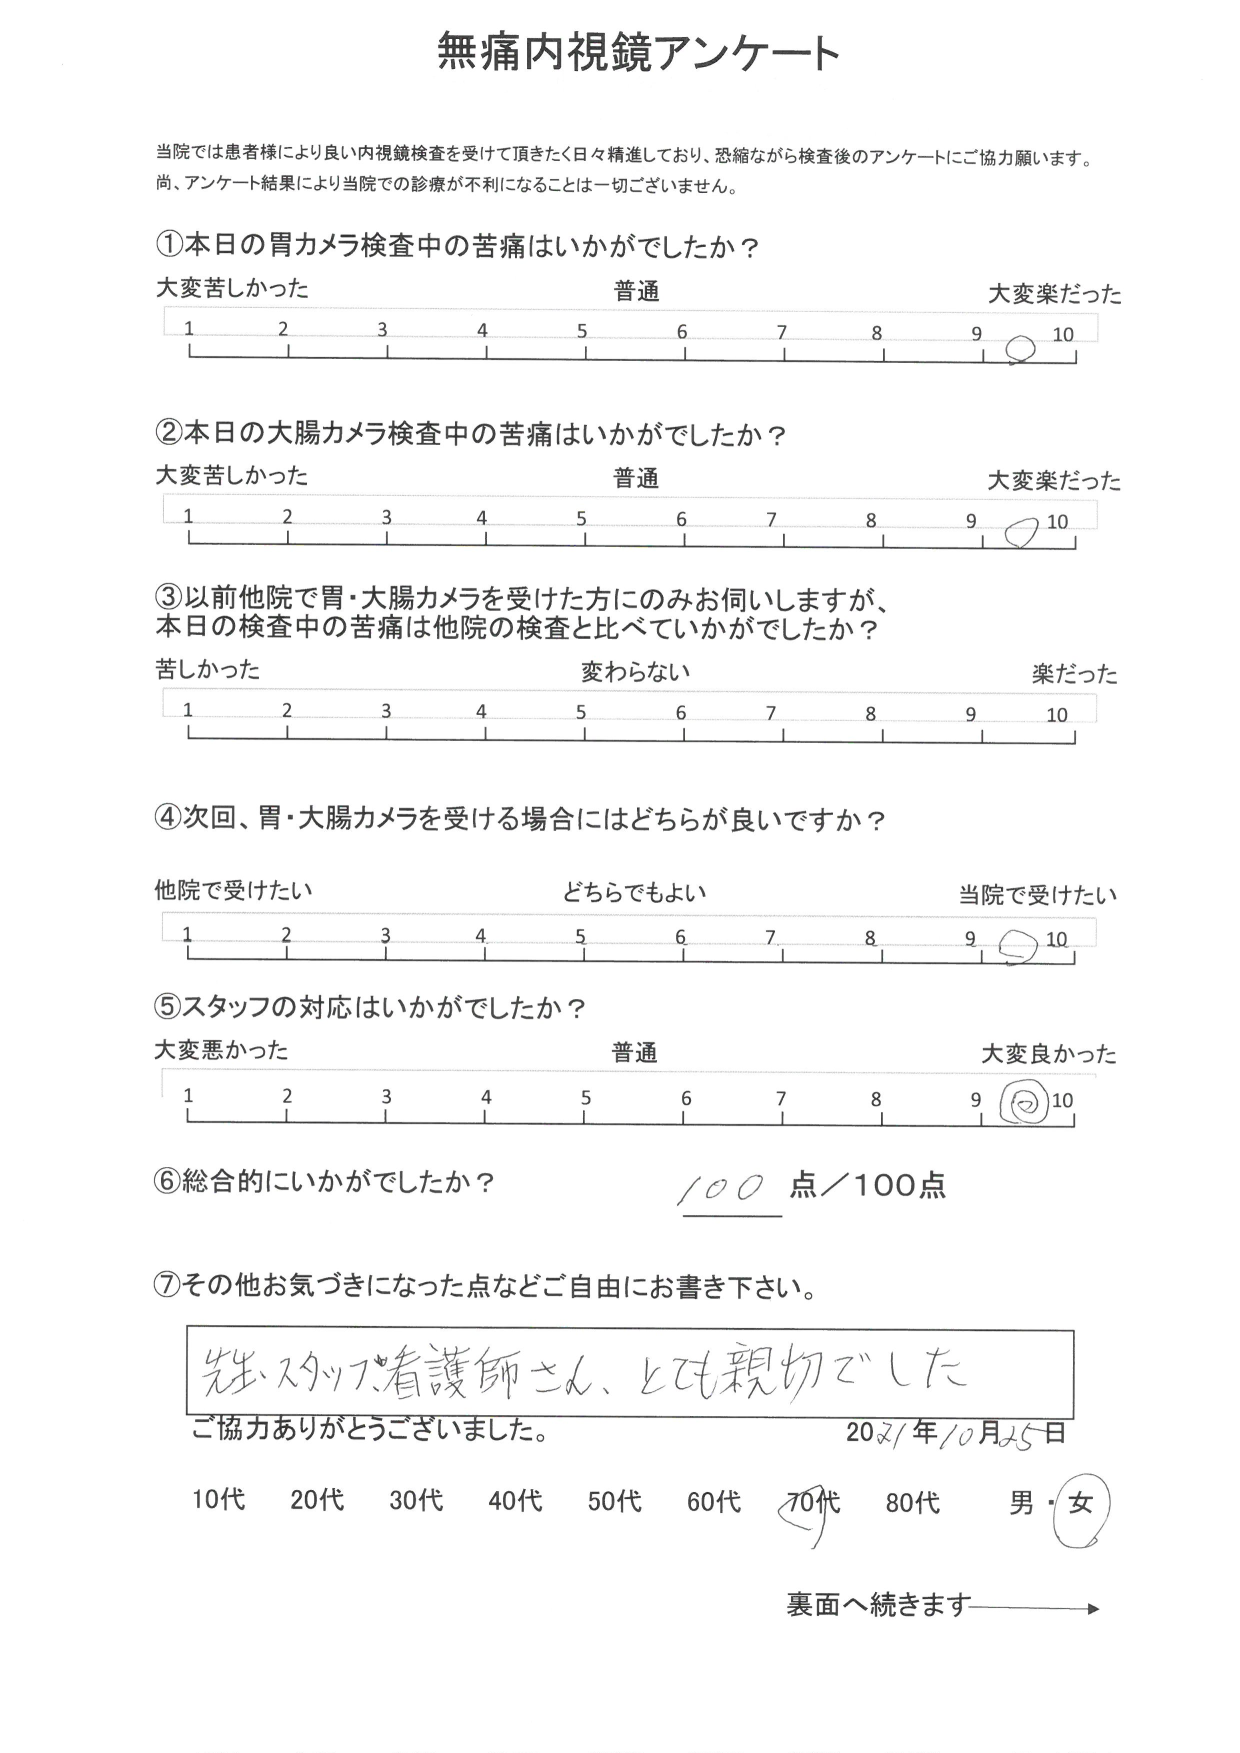 無痛内視鏡アンケート
当院では患者様により良い内視鏡検査を受けて頂きたく日々精進しており、恐縮ながら検査後のアンケートにご協力願います。
尚、アンケート結果により当院での診療が不利になることは一切ございません。
①本日の胃カメラ検査中の苦痛はいかがでしたか？
大変苦しかった 普通 大変楽だった
1 2 3 4 5 6 7 8 9 10
②本日の大腸カメラ検査中の苦痛はいかがでしたか？
大変苦しかった 普通 大変楽だった
1 2 3 4 5 6 7 8 9 10
③以前他院で胃・大腸カメラを受けた方にのみお伺いしますが、
本日の検査中の苦痛は他院の検査と比べていかがでしたか？
苦しかった 変わらない 楽だった
1 2 3 4 5 6 7 8 9 10
④次回、胃・大腸カメラを受ける場合にはどちらが良いですか？
他院で受けたい どちらでもよい 当院で受けたい
1 2 3 4 5 6 7 8 9 10
⑤スタッフの対応はいかがでしたか？
大変悪かった 普通 大変良かった
1 2 3 4 5 6 7 8 9 10
⑥総合的にいかがでしたか？ 100 点／100点
⑦その他お気づきになった点などご自由にお書き下さい。
先生、スタッフ、看護師さん、とても親切でした
ご協力ありがとうございました。 2021年10月25日
10代 20代 30代 40代 50代 60代 70代 80代 男・女
裏面へ続きます